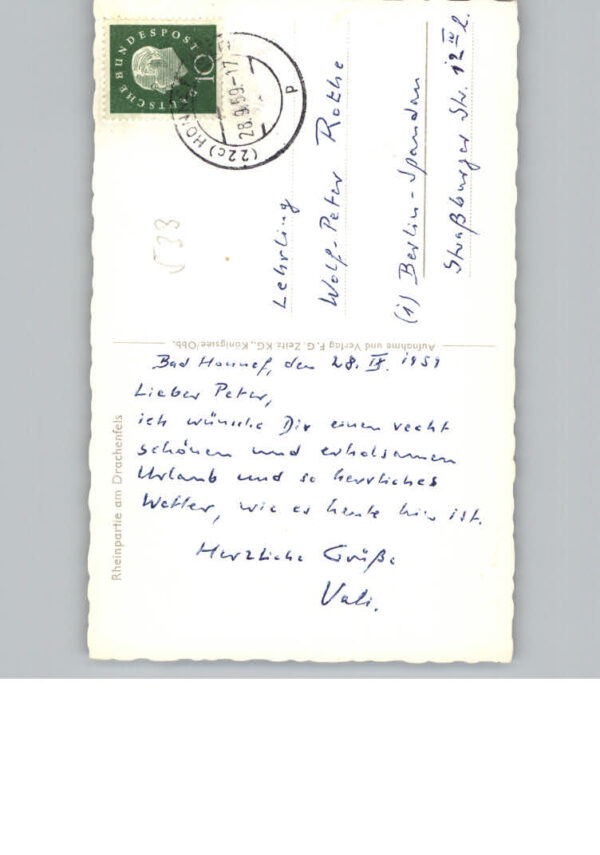 DEUTSCHE BUNDESPOST
10
(22c) HONNEF
28.9.59-17
p
533
Lehrling
Wolf-Peter Rothe
(1) Berlin-Spandau
Straßburger Str. 12 IV l.
Aufnahme und Verlag F. G. Zeitz KG., Königssee/Obb.
Rheinpartie am Drachenfels
Bad Honnef, den 28. IX. 1959
Lieber Peter,
ich wünsche Dir einen recht
schönen und erholsamen
Urlaub und so herrliches
Wetter, wie es heute hier ist.
Herzliche Grüße
Vati.